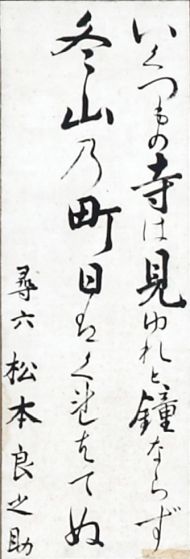 いくつもの寺は見ゆれと鐘ならず
冬山乃町日はくれはてぬ
尋六 松本良之助